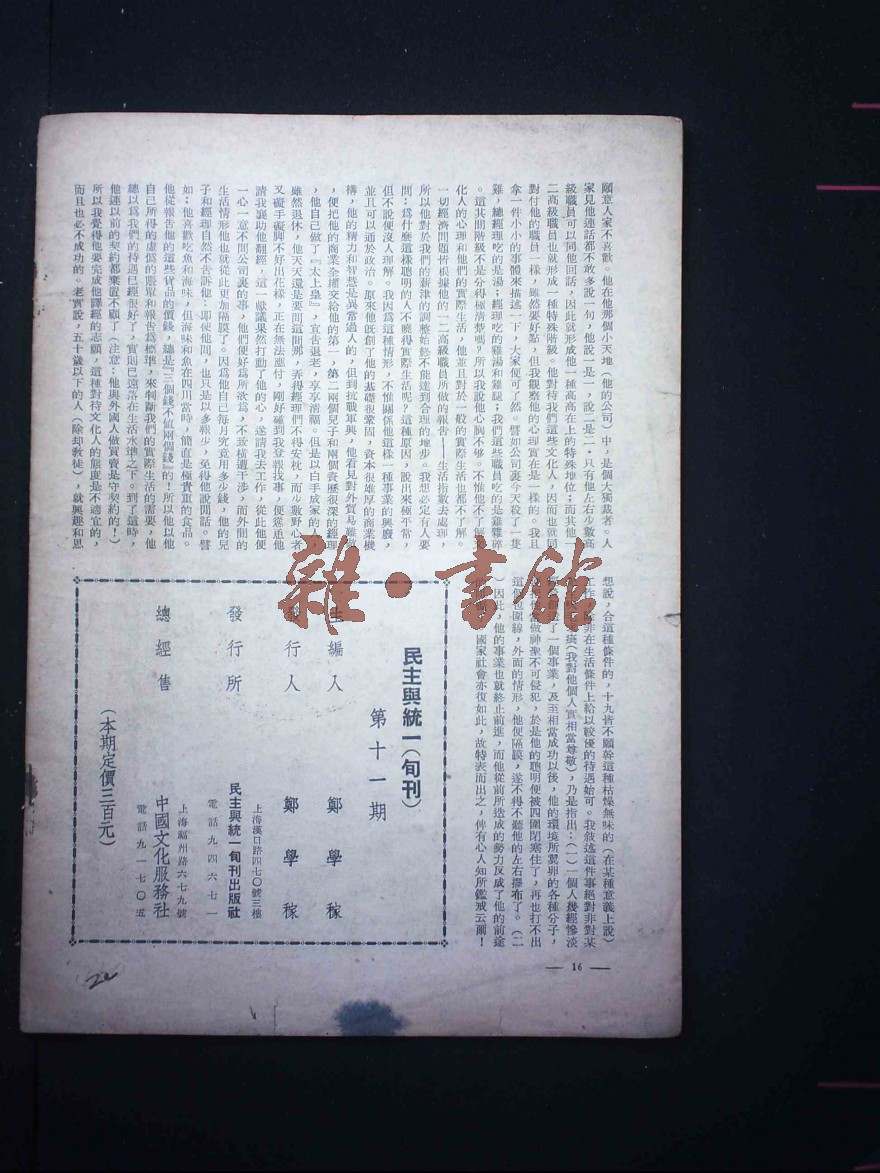 願意人家不喜歡。他在他那個小天地(他的公司)中,是個大獨裁者。人
家見他連話都不敢多說一句,他說一是一,說二是二。只有他左右少數高
級職員可以同他回話,因此就形成他一種高高在上的特殊地位;而其他一
二高級職員也就形成一種特殊階級。他對待我們這些文化人,因而也就同
對付他的職員一樣,雖然要好點,但我觀察他的心理實在是一樣的。我且
拿一件小小的事體來描述一下,大家便可了然。譬如公司裏今天殺了一隻
雞,總經理吃的是湯;經理吃的是雞湯和雞腿;我們這些職員吃的是雞雜碎
。這其間階級不是分得極清楚嗎?所以我說他心胸不够。不惟他不了解
化人的心理和他們的實際生活,他並且對於一般的實際生活也都不了解。
一切經濟問題皆根據他的一二高級職員所做的報告——生活指數去處理,
所以他對於我們的薪津的調整始終不能達到合理的地步。我想必定有人要
問:爲什麼這樣聰明的人不曉得實際生活呢?這種原因,說出來極平常,
但不說便沒人理解。我因爲這種情形,不惟關係他這樣一種事業的興廢,
並且可以通於政治。原來他旣創了他的基礎很鞏固,資本很雄厚的商業機
構,他的精力和智慧是異常過人的,但到抗戰軍興,他看見對外貿易難做
,便把他的商業全權交給他的第一,第二兩個兒子和兩個資歷很深的經理
,他自己做了『太上皇』,宣告退老,享享清福。但是以白手成家的人,
雖然退休,他天天還是要問這問那,弄得經理們不得安枕,而少數野心者
又礙手礙脚不好出花樣,正在無法應付,剛好碰到我登報找事,便慫恿他
請我襄助他翻經,這一獻議果然打動了他的心,遂請我去工作,從此他便
一心一意不問公司裏的事,他們便好爲所欲爲,不致橫遭干涉,而外間的
生活情形他也就從此更加隔膜了。因爲他自己每月究竟用多少錢,他的兒
子和經理自然不告訴他;卽使他問,也只是以多報少,免得他說閒話。譬
如:他喜歡吃魚和海味,但海味和魚在四川當時,簡直是極貴重的食品。
他從報告他的這些貨品的價錢,總是『三個錢不值兩個錢』的!所以他以他
自己所得的虛僞的賬單和報告爲標準,來判斷我們的實際生活的需要,他
總以爲我們的待遇已經很好了,實則已遠落在生活水準之下。到了這時,
他連以前的契約都棄置不顧了(注意:他與外國人做買賣是守契約的!)
所以我覺得他要完成他譯經的志願,這種對待文化人的態度是不適宜的,
而且也必不成功的。老實說,五十歲以下的人(除却教徒),就興趣和思
想說,合這種條件的,十九皆不願幹這種枯燥無味的(在某種意義上說)
工作,除非在生活條件上給以較優的待遇始可。我敍述這件事絕對非對某
(我對他個人實相當尊敬),乃是指出:(一)一個人幾經慘淡
了一個事業,及至相當成功以後,他的環境所翼卵的各種分子,
當做神聖不可侵犯,於是他的聰明便被四圍閉塞住了,再也打不出
這個包圍線,外面的情形,他便隔膜,遂不得不聽他的左右擺布了。(二
)因此,他的事業也就終止前進,而他從前所造成的勢力反成了他的前途
國家社會亦復如此,故特表而出之,俾有心人知所鑑戒云爾!
— 16 —
民主與統一(旬刊)
第十一期
主編人 鄭學稼
發行人 鄭學稼
發行所 民主與統一旬刊出版社
上海漢口路四七〇號三樓
電話九四六七一
總經售 中國文化服務社
上海福州路六七九號
電話九一七〇五
(本期定價三百元)
雜·書館